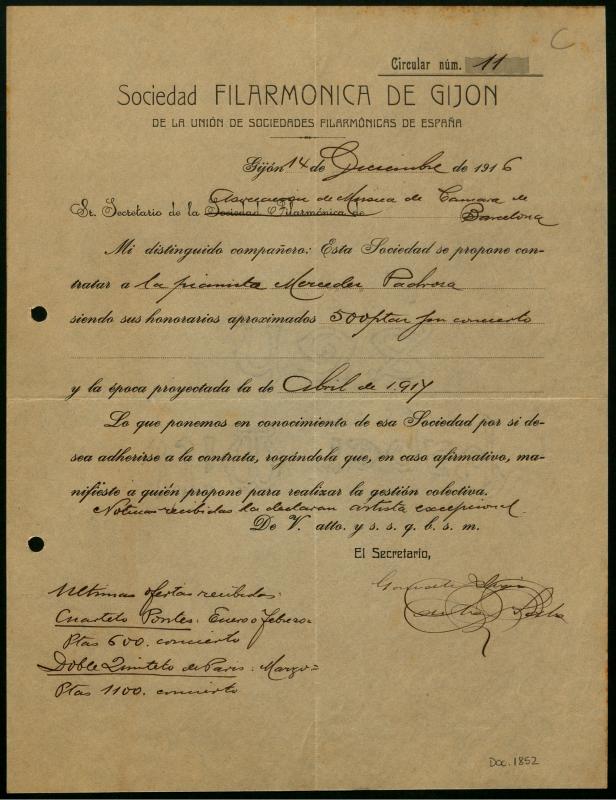 C
Circular núm. 11
Sociedad FILARMONICA DE GIJON
DE LA UNIÓN DE SOCIEDADES FILARMÓNICAS DE ESPAÑA
Gijón 14 de Diciembre de 1916
Asociacion de Musica de Camara de
Sr. Secretario de la Sociedad Filarmónica de Barcelona
Mi distinguido compañero: Esta Sociedad se propone con-
tratar a la pianista Mercedes Padrosa
siendo sus honorarios aproximados 500 ptas por concierto
y la época proyectada la de Abril de 1.917
Lo que ponemos en conocimiento de esa Sociedad por si de-
sea adherirse a la contrata, rogándola que, en caso afirmativo, ma-
nifieste a quién propone para realizar la gestión colectiva.
Noticias recibidas la declaran artista excepcional.
De V. atto. y s. s. q. b. s. m.
El Secretario,
Ultimas ofertas recibidas:
Cuarteto Pontes: Enero o febrero=
Ptas 600. concierto
Doble Quinteto de Paris: Marzo=
Ptas 1100. concierto
Doc. 1852